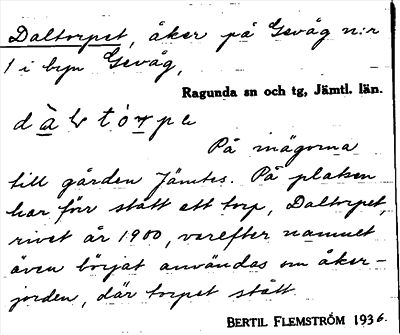 Daltorpet, åker på Gevåg n:r
1 i byn Gevåg,
Ragunda sn och tg, Jämtl. län.
På inägorna
till gården Jämtes. På platsen
har förr stått ett torp, Daltorpet,
rivet år 1900, varefter namnet
även börjat användas om åker-
jorden, där torpet stått.
BERTIL FLEMSTRÖM 1936.